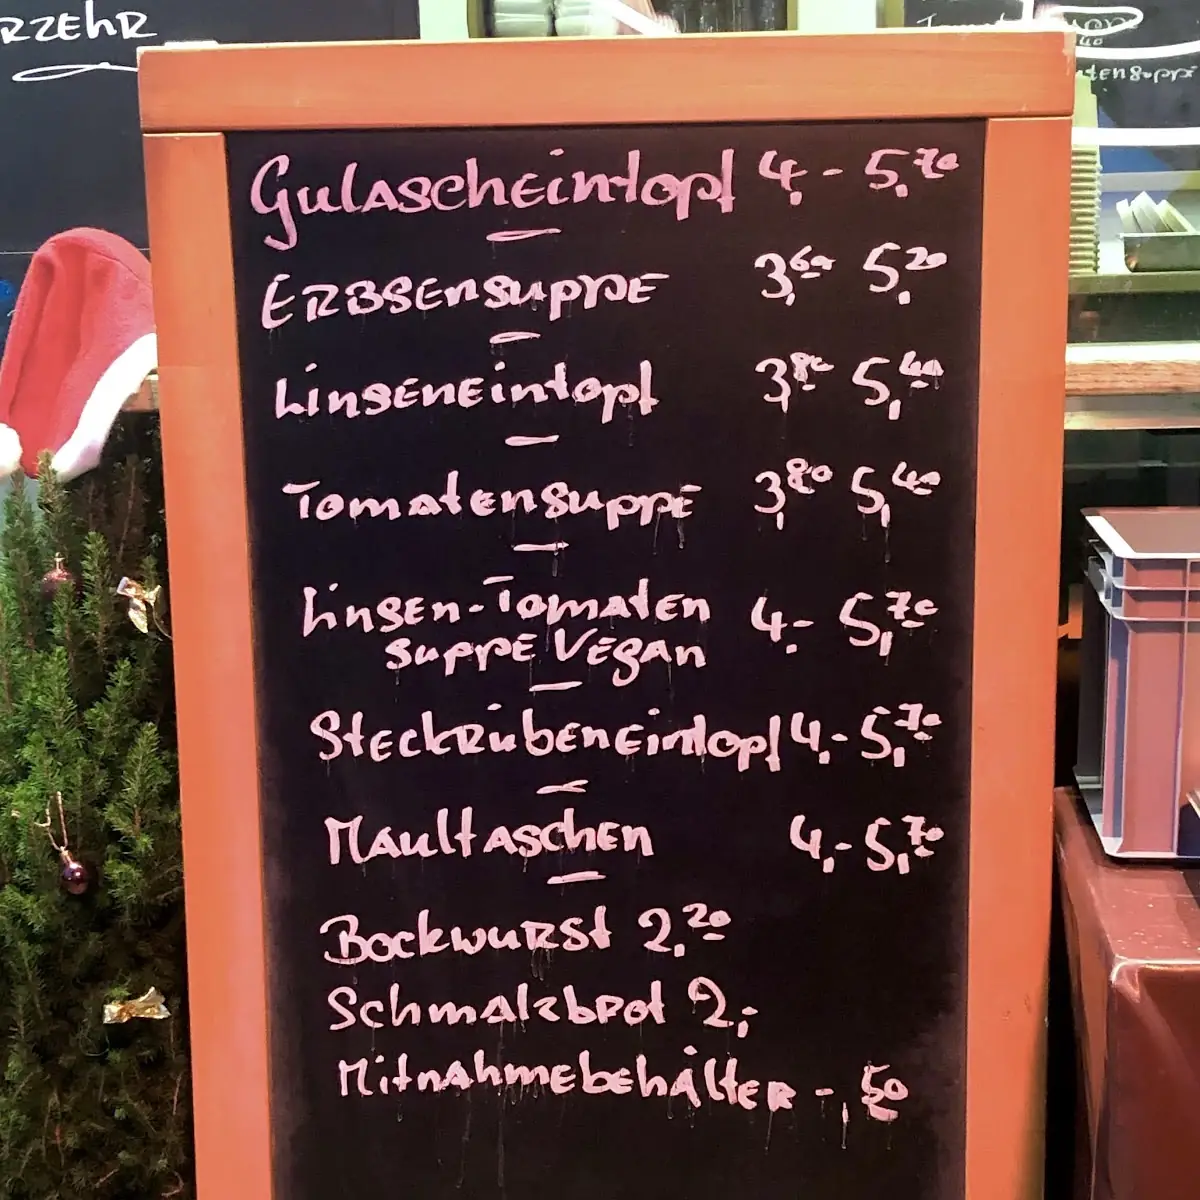 RZEHR
Gulascheintopf 4,- 5,70
Erbsensuppe 3,60 5,20
Linseneintopf 3,80 5,40
Tomatensuppe 3,80 5,40
Linsen-Tomaten
suppe Vegan 4,- 5,70
Steckrübeneintopf 4,- 5,70
Maultaschen 4,- 5,70
Bockwurst 2,20
Schmalzbrot 2,-
Mitnahmebehälter -,50